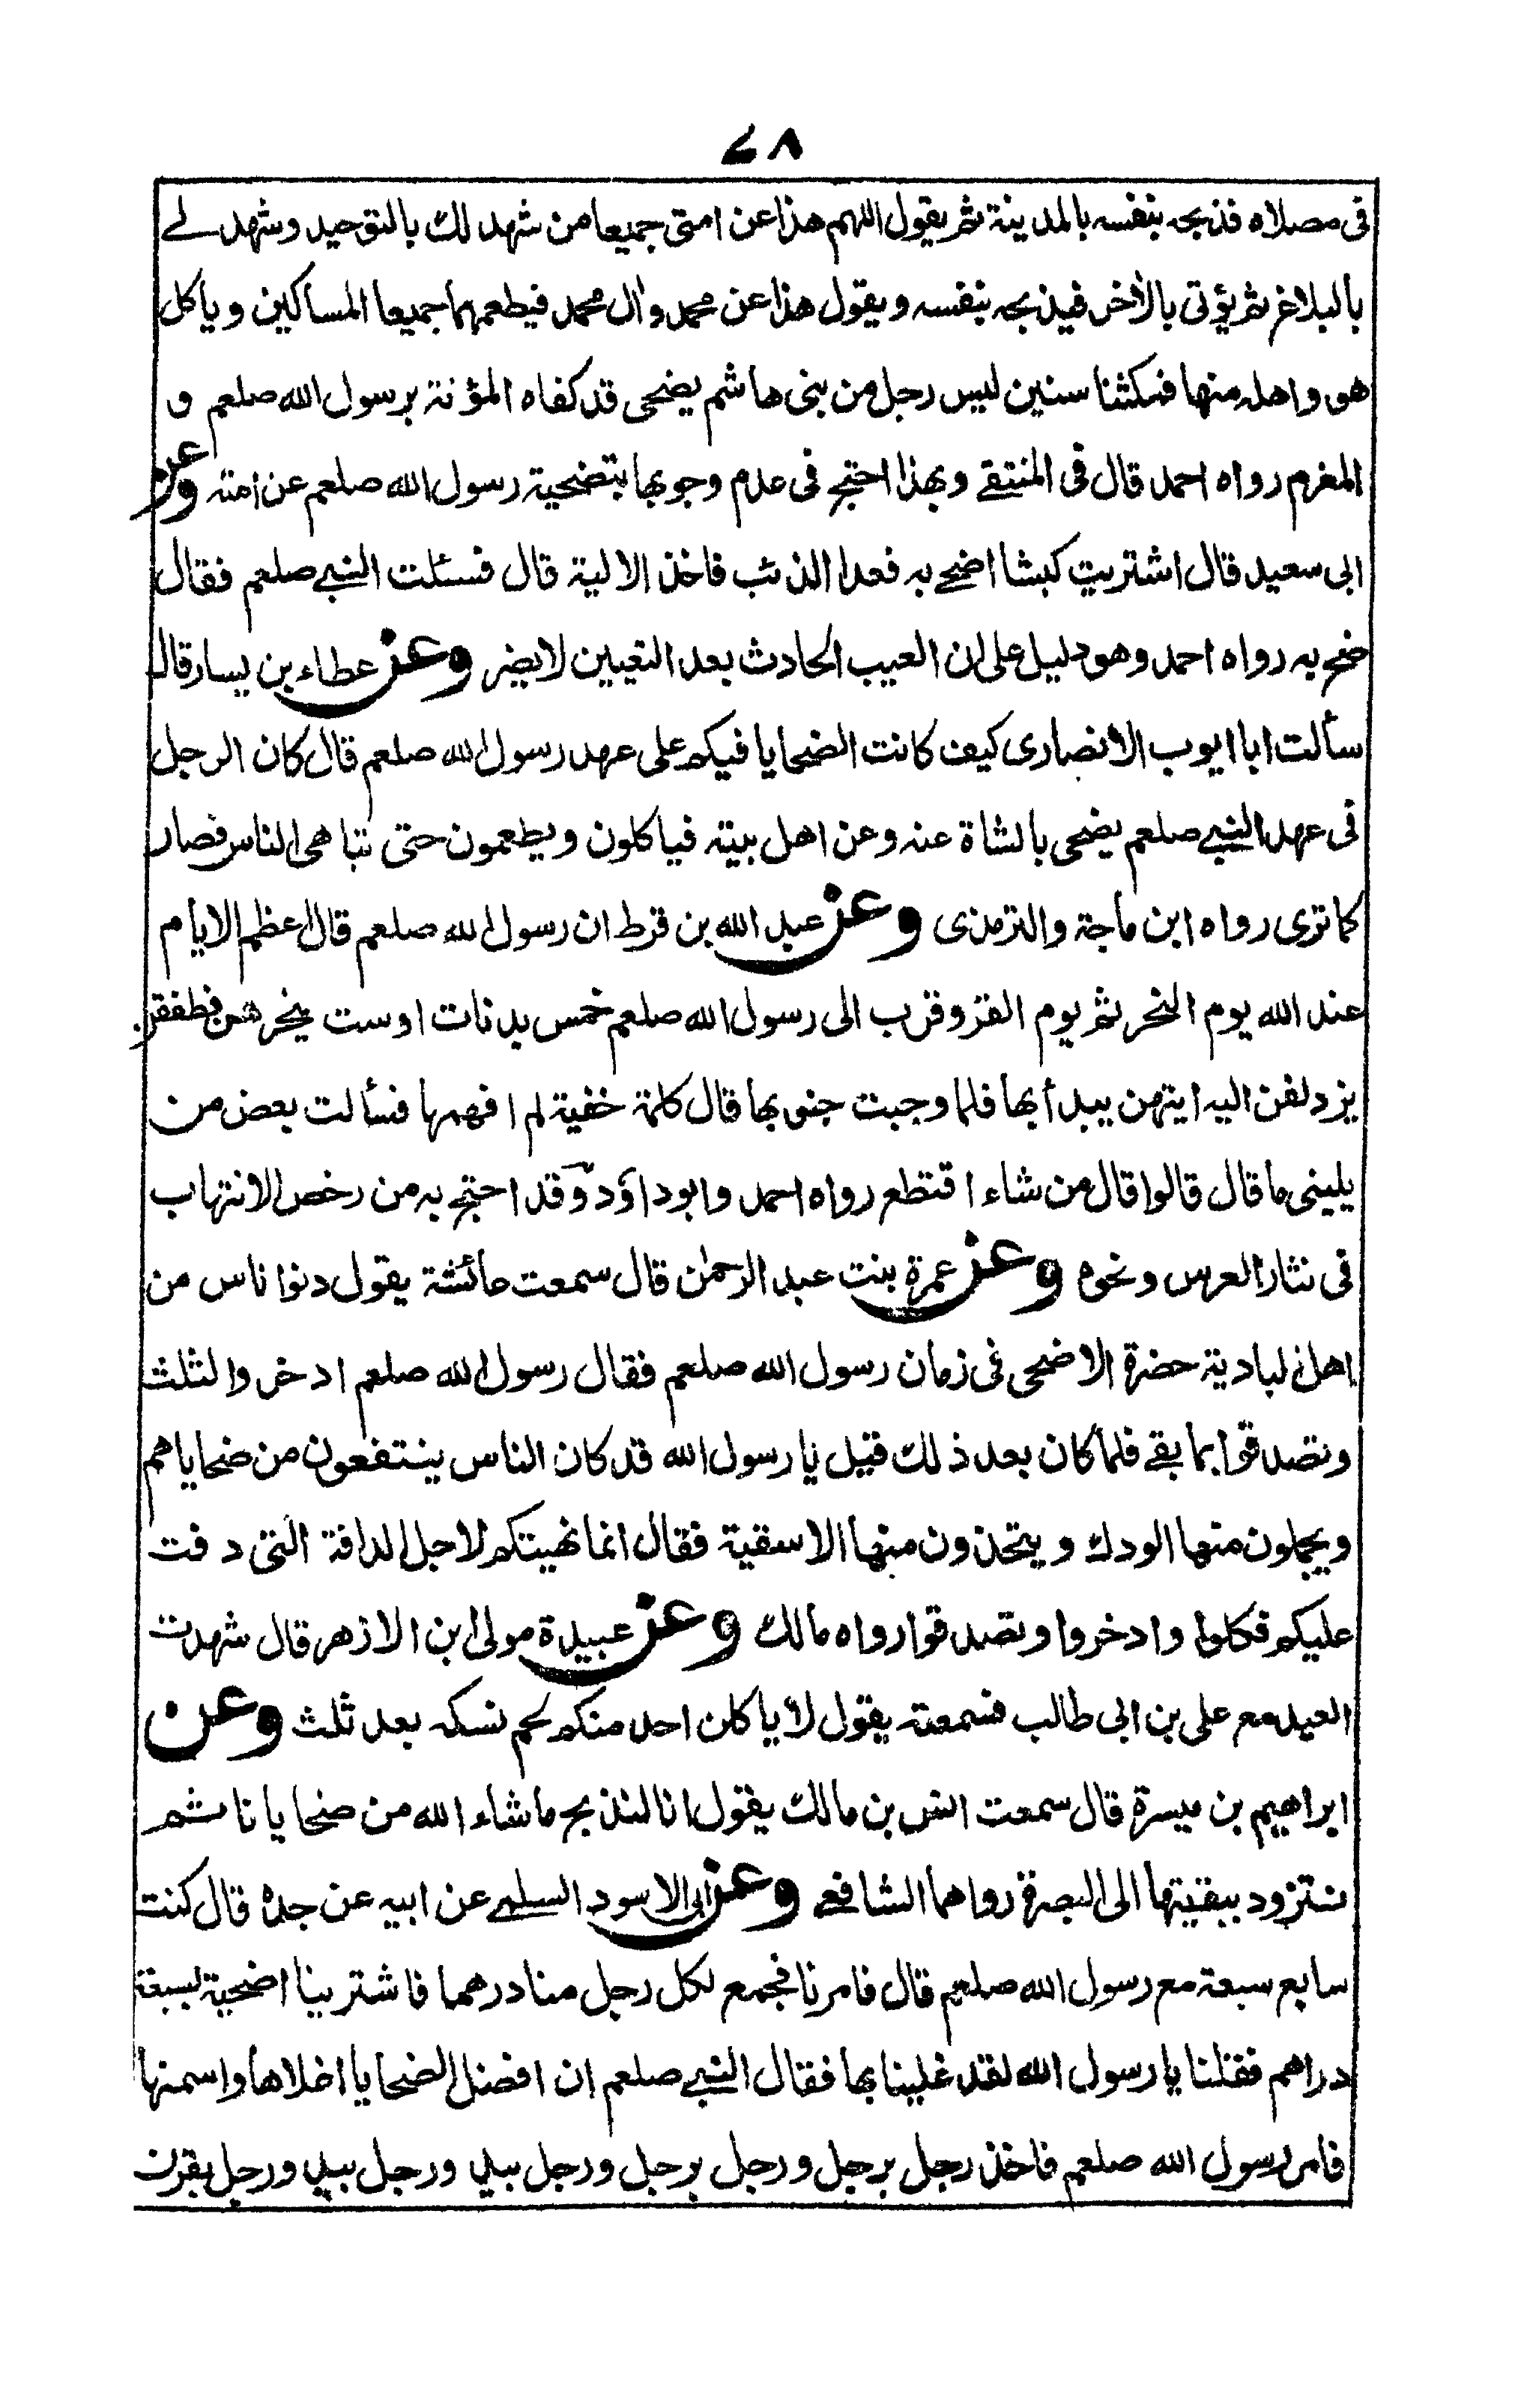 ٧٨
فى مصلاه فذبحه بنفسه بالمدينة ثم يقول اللهم هذا عن امتى جميعا من شهد لك بالتوحيد وشهد لے
بالبلاغ ثم يؤتى بالأخر فيذبحه بنفسه ويقول هذا عن محمد وٰال محمد فيطعمهما جميعا المساكين وياكل
هو واهله منها فمكثنا سنين ليس رجل من بنى هاشم يضحى قد كفاه المؤنة برسول الله صلعم و
المغرم رواه احمد قال فى المنتقے وبهذا احتج فى عدم وجوبها بتضحية رسول الله صلعم عن امته وعن
ابى سعيد قال اشتريت كبشا اضحے به فعدا الذئب فاخذ الالية قال فسئلت النبے صلعم فقال
ضح به رواه احمد وهو دليل على ان العيب الحادث بعد التعيين لا يضر وعن عطاء بن يسار قال
سألت ابا ايوب الأنصارى كيف كانت الضحايا فيكم على عهد رسول الله صلعم قال كان الرجل
فى عهد النبے صلعم يضحى بالشاة عنه وعن اهل بيته فياكلون ويطعمون حتى تباهى الناس فصار
كما ترى رواه ابن ماجة والترمذى وعن عبد الله بن قرط ان رسول الله صلعم قال اعظم الايام
عند الله يوم النحر ثم يوم القر وقرب الى رسول الله صلعم خمس بدنات اوست ينحرهن فطفقن
يزدلفن اليه ايتهن يبدأ بها فلما وجبت جنوبها قال كلمة خفية لم افهمها فسألت بعض من
يلينى ما قال قالوا قال من شاء اقتطع رواه احمد وابوداؤد وقد احتج به من رخص الانتهاب
فى نثار العرس ونحوه وعن عمرة بنت عبد الرحمٰن قال سمعت عائشة يقول دنوا ناس من
اهل البادية حضرة الاضحى فى زمان رسول الله صلعم فقال رسول الله صلعم ادخروا لثلث
وتصدقوا بما بقے فلما كان بعد ذلك قيل يا رسول الله قد كان الناس ينتفعون من ضحاياهم
ويجملون منها الودك ويتخذون منها الاسقية فقال انما نهيتكم لاجل الدافة التى دفت
عليكم فكلوا وادخروا وتصدقوا رواه مالك وعن عبيدة مولى ابن الازهر قال شهدت
العيد مع على بن ابى طالب فسمعته يقول لا ياكلن احد منكم لحم نسكه بعد ثلث وعن
ابراهيم بن ميسرة قال سمعت انس بن مالك يقول انا لنذبح ما شاء الله من ضحايانا ثم
نتزود ببقيتها الى البصرة رواهما الشافعے وعن ابى الاسود السلمے عن ابيه عن جده قال كنت
سابع سبعة مع رسول الله صلعم قال فامرنا نجمع لكل رجل منا درهما فاشترينا اضحية بسبعة
دراهم فقلنا يا رسول الله لقد غلينا بها فقال النبے صلعم ان افضل الضحايا اغلاها واسمنها
فامر رسول الله صلعم فاخذ رجل برجل ورجل برجل ورجل بيد ورجل بيد ورجل بقرن